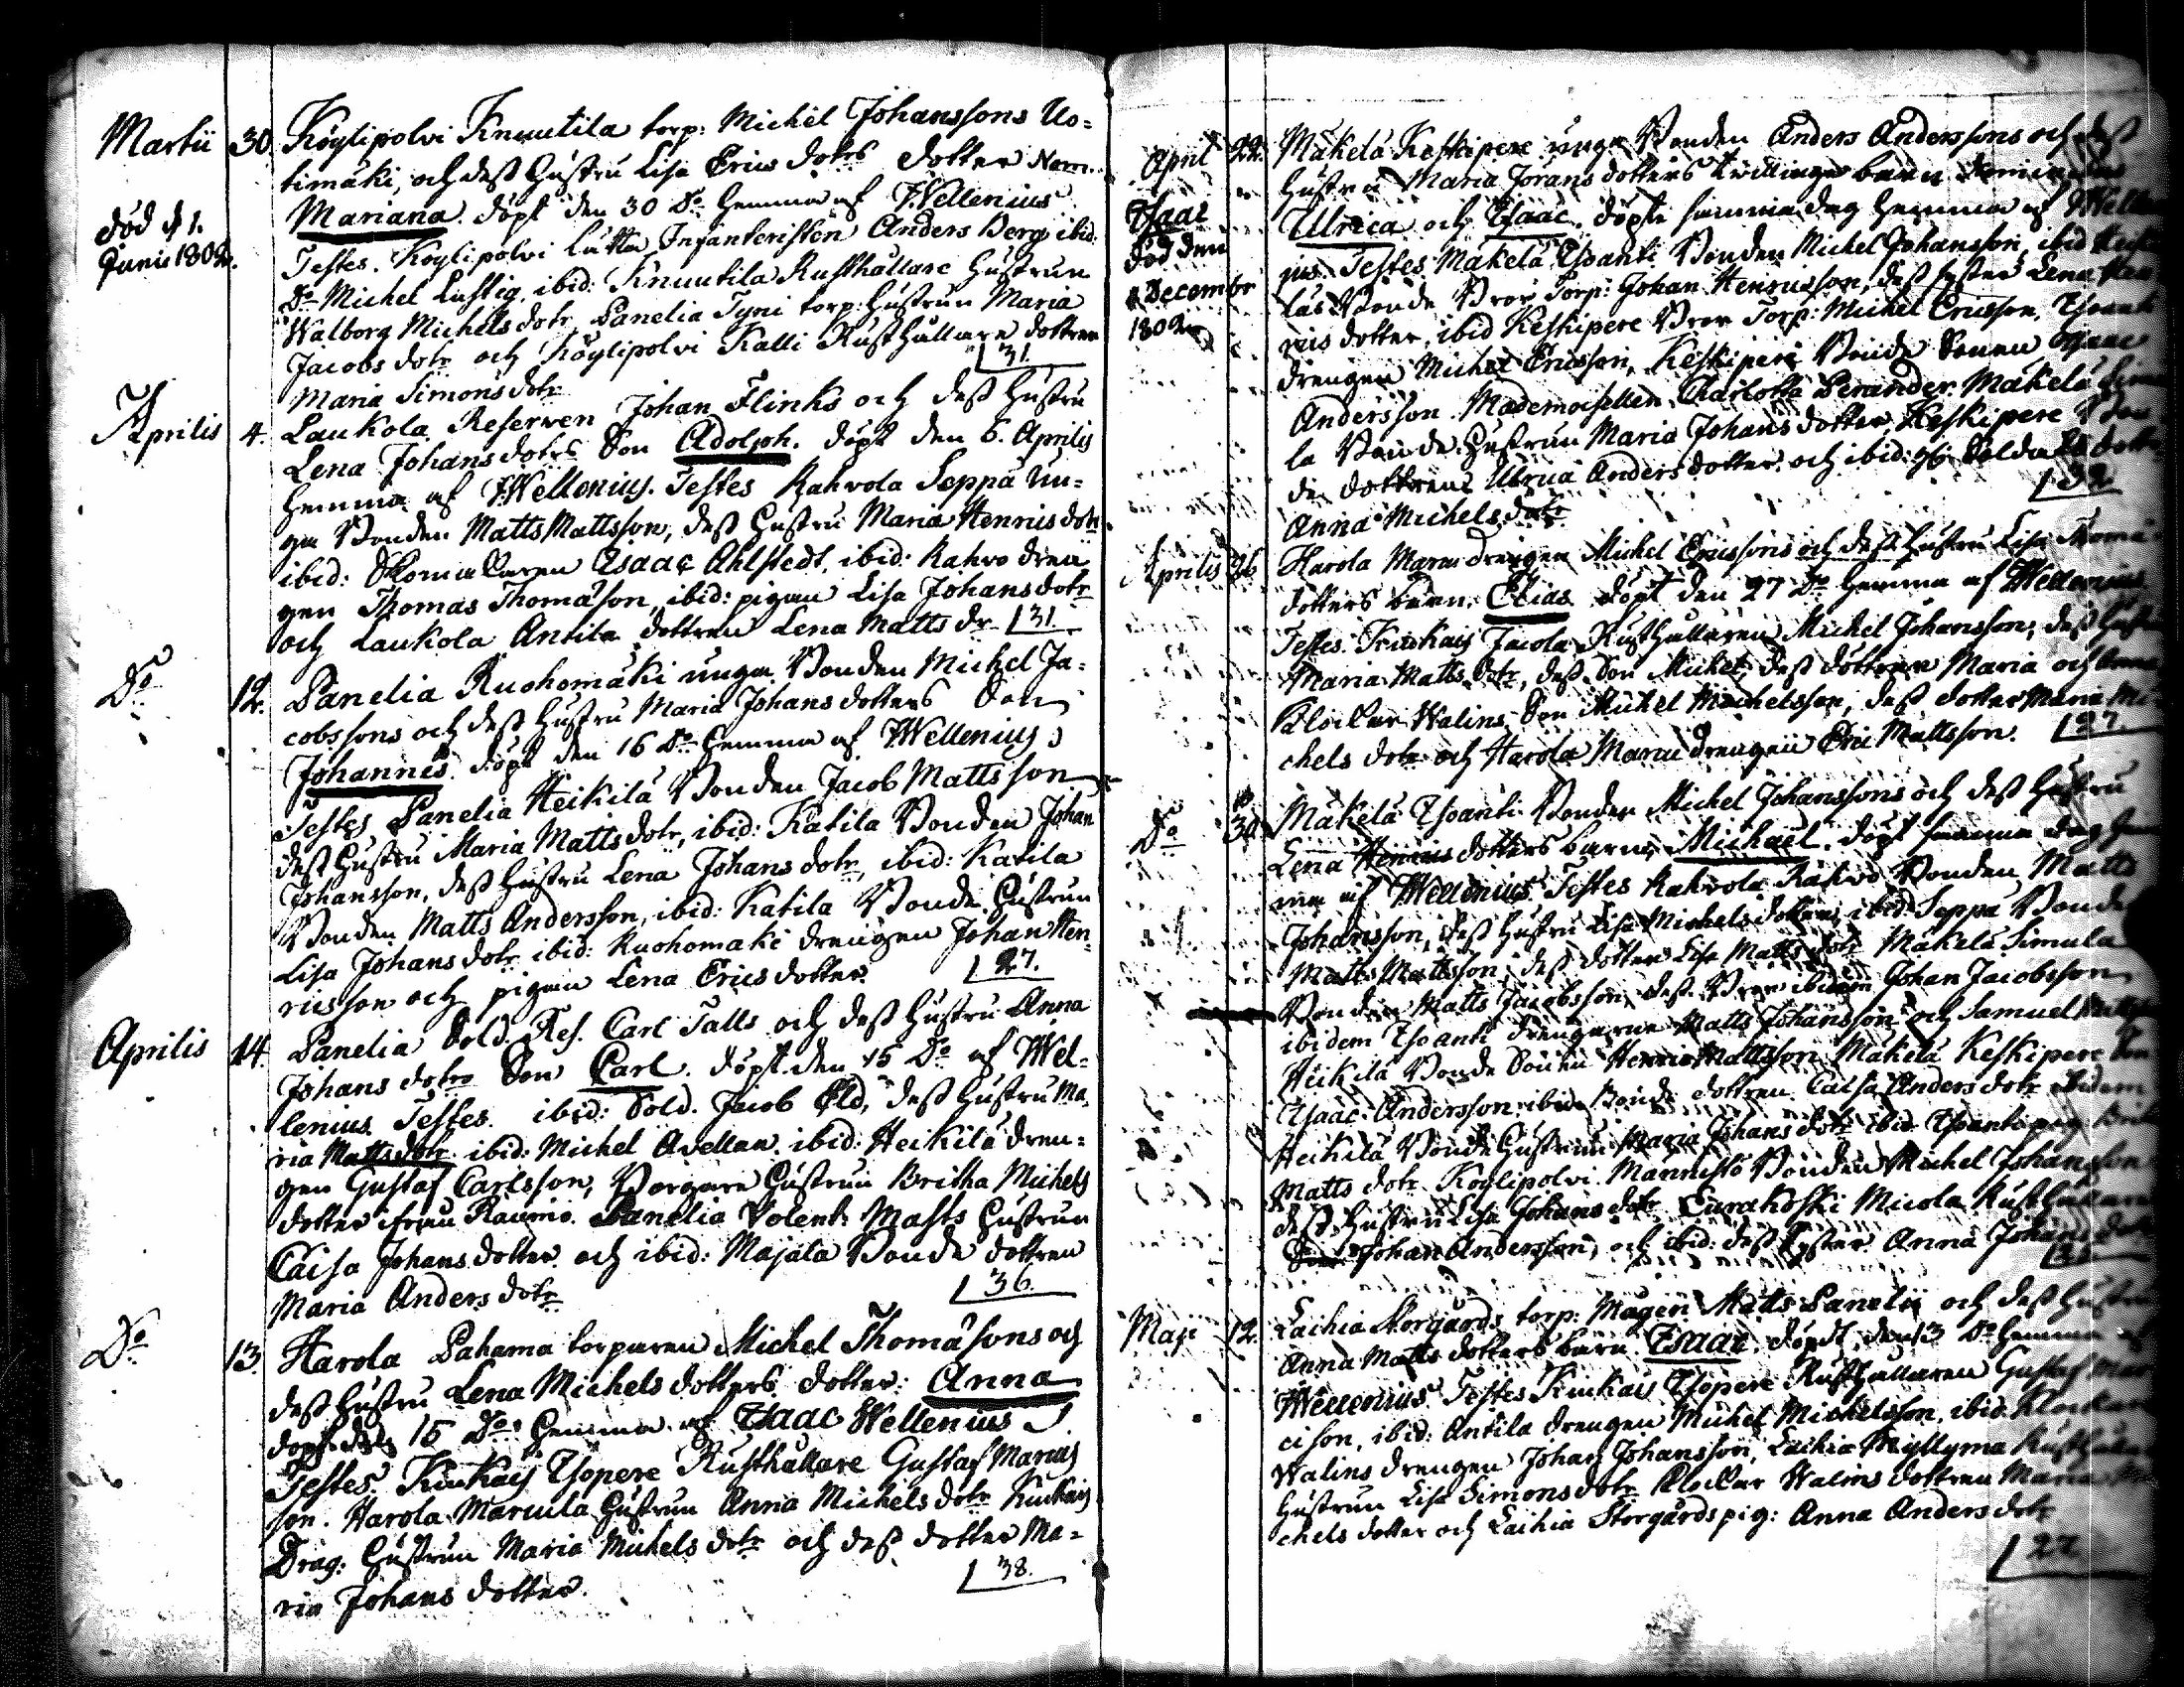 Martii 30. Köylipolvi Knuutila torp: Michel Johanssons Uo=
timäki, och dess Hustru Lisa Erics dotrs dotter Nom.
Mariana. döpt den 30 Do hemma af JWellenius
död d 1. Junii 1802.
Testes. Köylipolvi Lutta Infanteristen Anders Berg ibid:
Do Michel Lustig, ibid: Knuutila Rusthållare Hustrun
Walborg Michelsdotr, Panelia Tyni torp: Hustrun Maria
Jacobs dotr och Köylipolvi Kalli Rusthållare dottren
Maria Simonsdotr 31.
Aprilis 4. Laukola Reserven Johan Flinks och dess Hustru
Lena Johansdotrs Son Adolph. döpt den 6. Aprilis
hemma af JWellenius. Testes Rahvola Seppä un=
ga Bonden Matts Mattsson, dess Hustru Maria Henricsdotr
ibid: Skomakaren Isaac Ahlstedt, ibid: Rahvo dren
gen Thomas Thomason, ibid: pigan Lisa Johansdotr
och Laukola Antila dottren Lena Matts dr. 31.
Do 12. Panelia Ruohomäki unga Bonden Michel Ja=
cobssons och dess Hustru Maria Johans dotters Son
Johannes. döpt den 16 Do hemma af JWellenius
Testes Panelia Heikilä Bonden Jacob Mattsson
dess Hustru Maria Matts dotr, ibid: Katila Bonden Johan
Johansson, dess Hustru Lena Johans dotr, ibid: Katila
Bonden Matts Andersson, ibid: Katila Bonde Hustrun
Lisa Johans dotr ibid: Ruohomäki drengen Johan Hen
ricsson och pigan Lena Ericsdotter. 27.
Aprilis 14. Panelia Sold. Res. Carl Talls och dess Hustru Anna
Johans dotrs Son Carl. döpt den 15 Do af Wel=
lenius Testes. ibid: Sold. Jacob Eld, dess Hustru Ma
ria Matts dotr. ibid: Michel Avellan. ibid: Heikilä dren=
gen Gustaf Carlsson, Borgare Hustrun Britha Michels
dotter ifrån Raumo. Panelia Volent: Masts Hustrun
Caisa Johans dotter och ibid: Majala Bonde dottren
Maria Anders dotr 36.
Do 13. Harola Pahama torparen Michel Thomasons och
dess Hustru Lena Michels dotters dotter: Anna
döpt den 15 Do hemma af Isaac Wellenius
Testes. Kiukais Isopere Rusthållare Gustaf Marcus
son. Harola Marcula Hustrun Anna Michels dotr Kiukais
Drag: Hustrun Maria Michels dotr och dess dotter Ma=
ria Johans dotter. 38.
April 22. Mäkelä Keskipere unga Bonden Anders Anderssons och dess
Hustru Maria Jörans dotters Twillinge barn
Isaac död den Decembr 1802
Ulrica och Isaac. döpte samma dag hemma af Wellen
jus. Testes Mäkelä Isoanti Bonden Michel Johansson, ibid
Bonde Bror Torp: Johan Henricsson, dess syster Lena Hen
rics dotter, ibid Keskipere Bror Torp: Michel Ericsson, Isoanti
drengen Michel Ericsson, Keskipere Bonde Sonen Isaac
Andersson. Mademoisellen Charlotta Perander. Mäkelä Simu
la Bonde Hustrun Maria Johans dotter, Keskipere Bon
de dottren Ulrica Anders dotter, och ibid: Soldate dottr
Anna Michels dotr 32
Aprilis 26 Harola drengen Michel Ericssons och dess Hustru Lisa Thoma
dotters barn, Elias döpt den 27 Do hemma af Wellenius
Testes. Kiukais Jacola Rusthållaren Michel Johansson, dess Hustru
Maria Matts dotr, dess Son Michel, dess döttrar Maria och Anna
Klockar Walins Son Michel Michelsson, dess dotter Maria Mi
chels dotr och Harola drengen Eric Mattsson. 27.
Do 30. Mäkelä Isoanti Bonden Michel Johanssons och dess Hustru
Lena Henrics dotters barn, Michael. döpt samma dag hem
ma af Wellenius. Testes Rahvola Rahvo Bonden Matts
Johansson, dess Hustru Lisa Michels dotter, ibid: Seppä Bonden
Matts Mattsson, dess dotter Lisa Matts dotr Mäkelä Simula
Bonden Matts Jacobsson, dess Bror ibidem Johan Jacobsson
ibidem Isoanti drengarne Matts Johansson och Samuel
Heikilä Bonde Sonen Henric Mattsson Mäkelä Keskipere Son
Isaac Andersson, ibid: Bonde dottren Caisa Anders dotr ibidem
Heikilä Bonde Hustrun Maria Johans dotr ibid Isoanti pig
Matts dotr Köylipolvi Mannistö Bonden Michel Johansson
dess Hustru Lisa Johans dotr Eurakoski Micola Rusthållare
Son Johan Andersson, och ibid: dess Syster Anna Johans dotr
Maji 12. Laihia Storgårds torp: Magen Matts Panelii och dess Hustru
Anna Matts dotters barn Isaac. döpt den 13 Do hemma af
Wellenius. Testes Kiukais Isopere Rusthållaren Gustaf Mar
cison, ibid: Antila drengen Michel Michelsson, ibid. Klockar
Walins drengen Johan Johansson, Laihia Myllymä Rusthållar
Hustrun Lisa Simons dotr Klockar Walins dottren Maria Mi
chels dotter och Laihia Storgårds pig: Anna Anders dotr
27